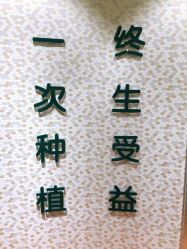 一次种植
终生受益